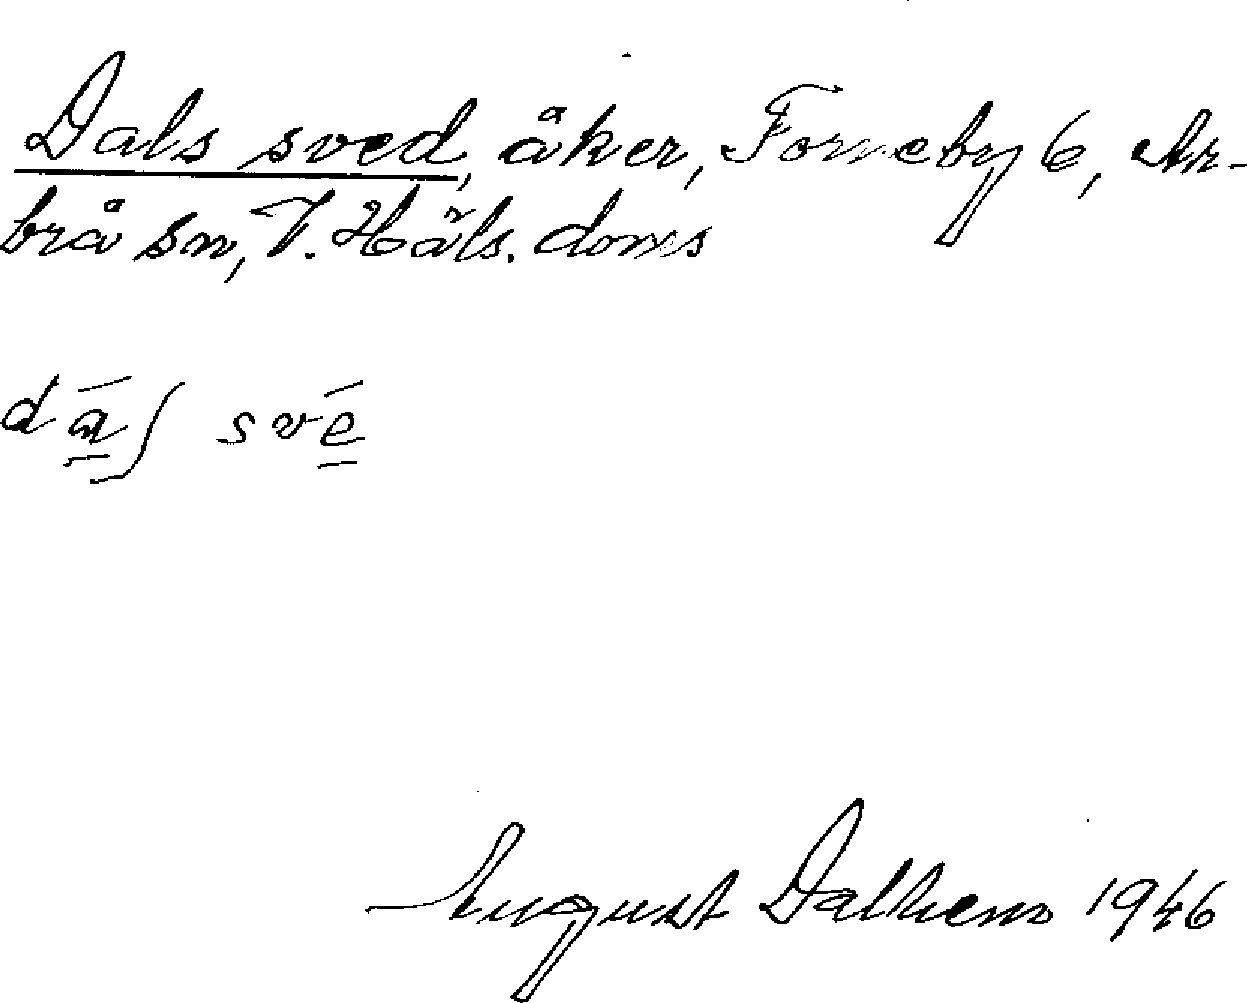 Dals sved, åker, Forneby 6, Ar-
brå sn, V. Häls. doms
da̲ʃ sve̲
August Dalhem 1946